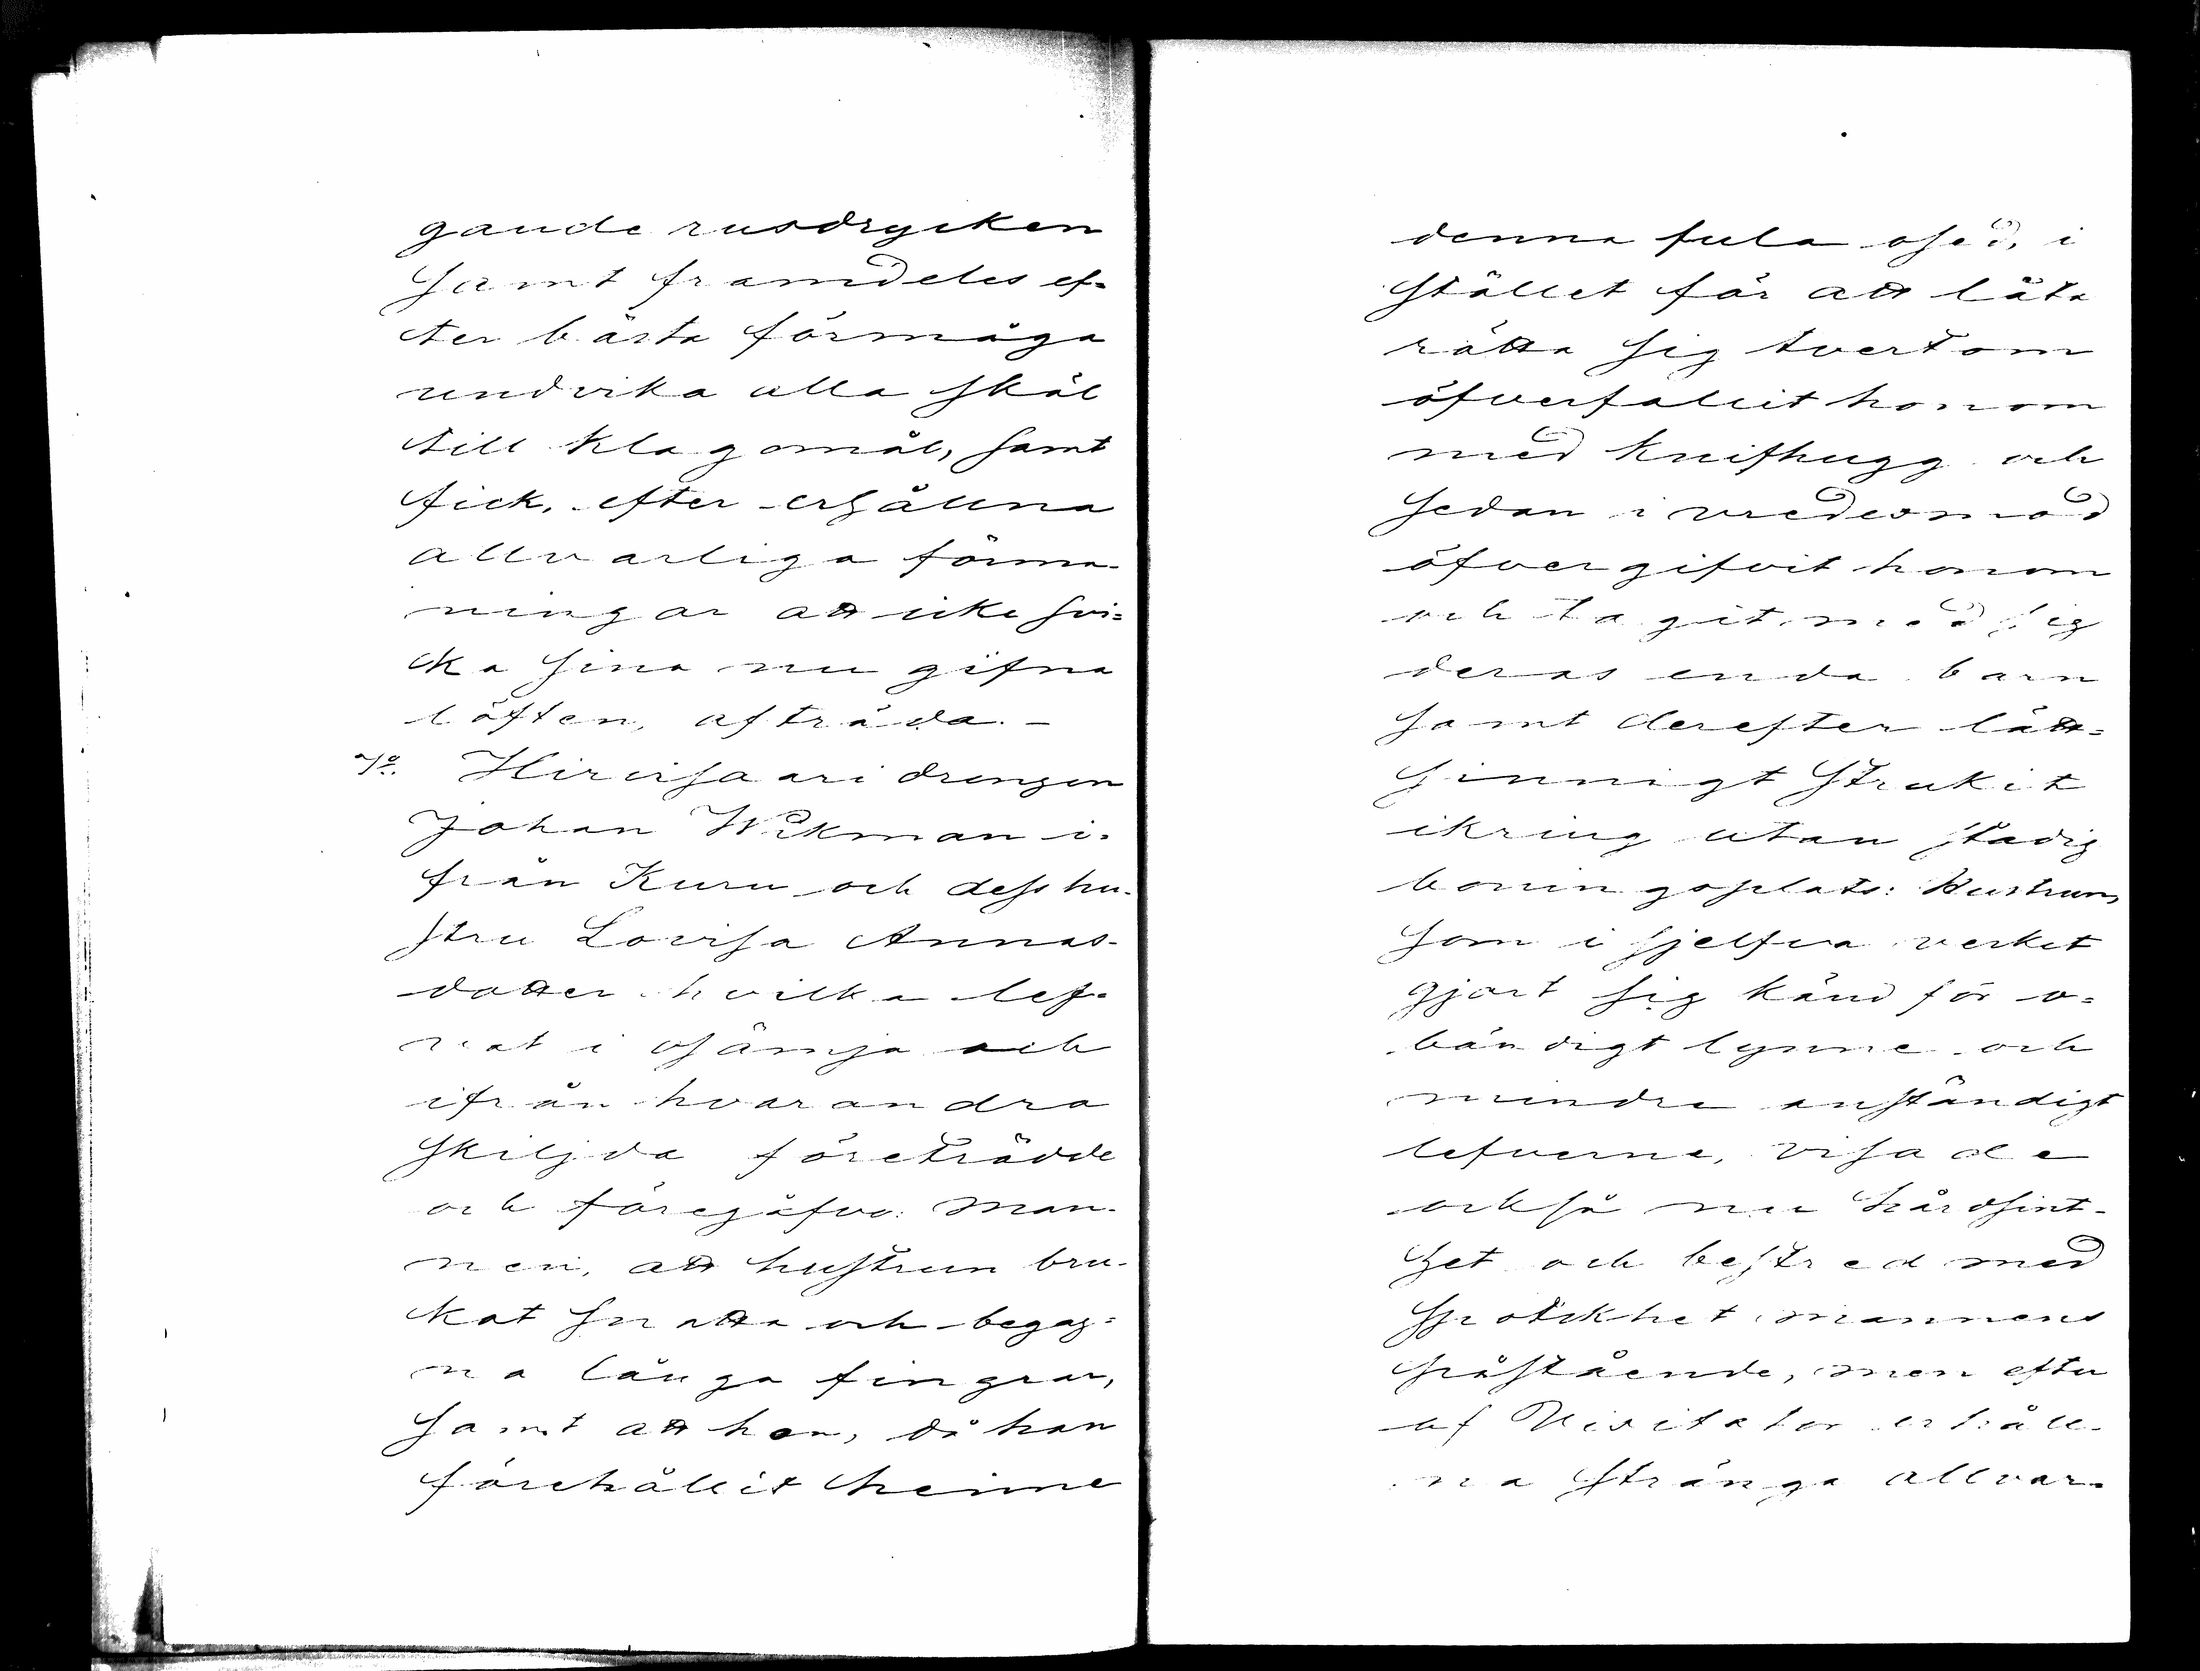 gande rusdrycken
samt framdeles ef-
ter bästa förmåga
undvika alla skäl
till klagomål, samt
fick, efter erhållna
allvarliga förma-
ningar att icke svi-
ka sina nu gifna
löften, afträda. -
7º. Hirvisaari drengen
Johan Wikman i-
från Kuru och dess hu-
stru Lovisa Annas-
dotter hvilka lef-
vat i osämja och
ifrån hvarandra
skiljda företrädde
och föregåfvo: man-
nen, att hustrun bru-
kat snatta och begag-
na långa fingrar,
samt att hon, då han
förehållit henne
denna fula osed, i
stället för att låta
rätta sig tvertom
öfverfallit honom
med knifhugg och
sedan i vredesmod
öfvergifvit honom
och tagit med sig
deras enda barn
samt derefter lätt-
sinnigt strukit
ikring utan stadig
boningsplats: Hustrun,
som i sjelfva verket
gjort sig känd för o-
bändigt lynne och
mindre anständigt
lefverne, visade
också nu hårdsint-
het och bestred med
spotskhet mannens
påstående, men efter
af Visitator erhåll-
na stränga allvar-